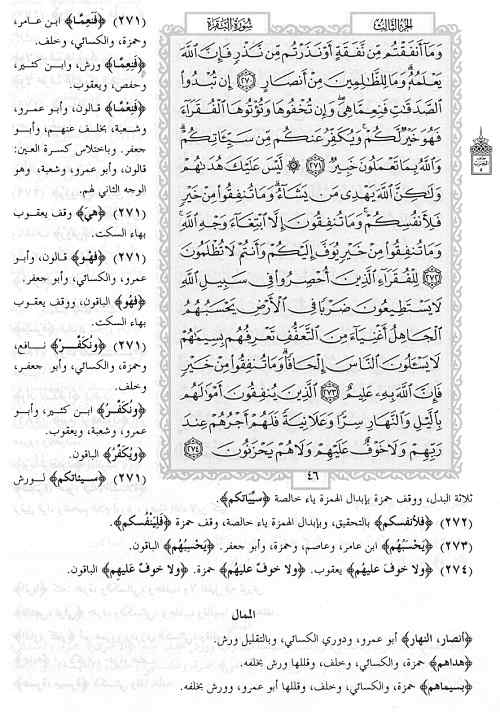 الجزء الثالث
سورة البقرة
وَمَا أَنفَقْتُم مِّن نَّفَقَةٍ أَوْ نَذَرْتُم مِّن نَّذْرٍ فَإِنَّ اللَّهَ
يَعْلَمُهُ وَمَا لِلظَّالِمِينَ مِنْ أَنصَارٍ ٢٧٠ إِن تُبْدُوا
الصَّدَقَاتِ فَنِعِمَّا هِيَ وَإِن تُخْفُوهَا وَتُؤْتُوهَا الْفُقَرَاءَ
فَهُوَ خَيْرٌ لَّكُمْ وَيُكَفِّرُ عَنكُم مِّن سَيِّئَاتِكُمْ
وَاللَّهُ بِمَا تَعْمَلُونَ خَبِيرٌ ٢٧١ ۞ لَّيْسَ عَلَيْكَ هُدَاهُمْ
وَلَٰكِنَّ اللَّهَ يَهْدِي مَن يَشَاءُ وَمَا تُنفِقُوا مِنْ خَيْرٍ
فَلِأَنفُسِكُمْ وَمَا تُنفِقُونَ إِلَّا ابْتِغَاءَ وَجْهِ اللَّهِ
وَمَا تُنفِقُوا مِنْ خَيْرٍ يُوَفَّ إِلَيْكُمْ وَأَنتُمْ لَا تُظْلَمُونَ
٢٧٢ لِلْفُقَرَاءِ الَّذِينَ أُحْصِرُوا فِي سَبِيلِ اللَّهِ
لَا يَسْتَطِيعُونَ ضَرْبًا فِي الْأَرْضِ يَحْسَبُهُمُ
الْجَاهِلُ أَغْنِيَاءَ مِنَ التَّعَفُّفِ تَعْرِفُهُم بِسِيمَاهُمْ
لَا يَسْأَلُونَ النَّاسَ إِلْحَافًا وَمَا تُنفِقُوا مِنْ خَيْرٍ
فَإِنَّ اللَّهَ بِهِ عَلِيمٌ ٢٧٣ الَّذِينَ يُنفِقُونَ أَمْوَالَهُم
بِاللَّيْلِ وَالنَّهَارِ سِرًّا وَعَلَانِيَةً فَلَهُمْ أَجْرُهُمْ عِندَ
رَبِّهِمْ وَلَا خَوْفٌ عَلَيْهِمْ وَلَا هُمْ يَحْزَنُونَ ٢٧٤
٤٦
(٢٧١) ﴿فَنَعِمَّا﴾ ابن عامر،
وحمزة، والكسائي، وخلف.
﴿فَنِعِمَّا﴾ ورش، وابن كثير،
وحفص، ويعقوب.
﴿فَنِعْمَّا﴾ قالون، وأبو عمرو،
وشعبة، بخلف عنهم، وأبو
جعفر. وباختلاس كسرة العين:
قالون، وأبو عمرو، وشعبة، وهو
الوجه الثاني لهم.
(٢٧١) ﴿هيَ﴾ وقف يعقوب
بهاء السكت.
(٢٧١) ﴿فَهْو﴾ قالون، وأبو
عمرو، والكسائي، وأبو جعفر.
﴿فَهُو﴾ الباقون، ووقف يعقوب
بهاء السكت.
(٢٧١) ﴿ونُكَفِّرْ﴾ نافع،
وحمزة، والكسائي، وأبو جعفر،
وخلف.
﴿ونُكَفِّرُ﴾ ابن كثير، وأبو
عمرو، وشعبة، ويعقوب.
﴿ويُكَفِّرُ﴾ الباقون.
(٢٧١) ﴿سيئاتكم﴾ لورش
ثلاثة البدل، ووقف حمزة بإبدال الهمزة ياء خالصة ﴿سيِّياتكم﴾.
(٢٧٢) ﴿فلأنفسكم﴾ بالتحقيق، وبإبدال الهمزة ياء خالصة، وقف حمزة ﴿فَلِيَنْفُسكم﴾.
(٢٧٣) ﴿يَحْسَبُهُم﴾ ابن عامر، وعاصم، وحمزة، وأبو جعفر. ﴿يَحْسِبُهُم﴾ الباقون.
(٢٧٤) ﴿ولا خوفَ عليهُم﴾ يعقوب. ﴿ولا خوفٌ عليهُم﴾ حمزة. ﴿ولا خوفٌ عَليهِم﴾ الباقون.
الممال
﴿أنصار، النهار﴾ أبو عمرو، ودوري الكسائي، وبالتقليل ورش.
﴿هداهم﴾ حمزة، والكسائي، وخلف، وقللها ورش بخلفه.
﴿بسيماهم﴾ حمزة، والكسائي، وخلف، وقللها أبو عمرو، وورش بخلفه.